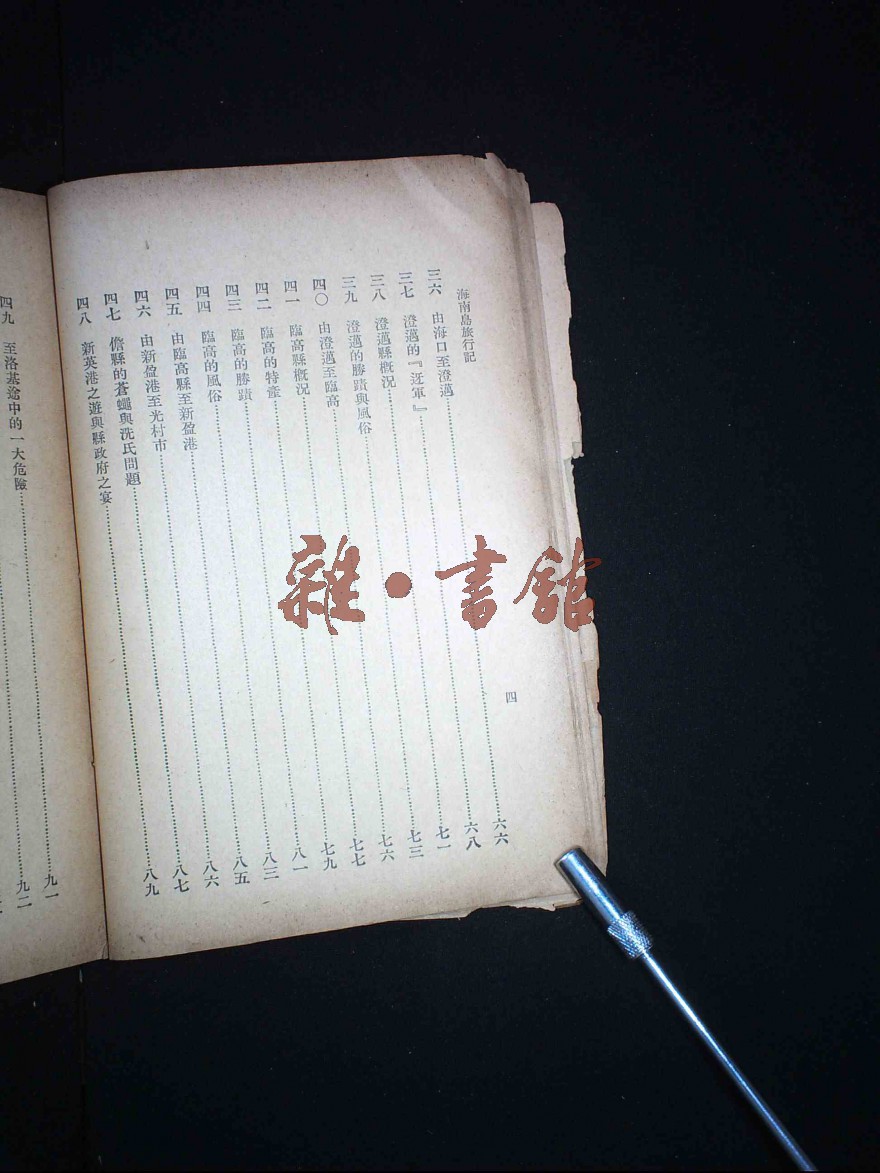 海南島旅行記
四
三六 由海口至澄邁……六六
三七 澄邁的『迓軍』……六八
三八 澄邁縣概況……七一
三九 澄邁的勝蹟與風俗……七三
四〇 由澄邁至臨高……七六
四一 臨高縣概況……七七
四二 臨高的特產……七九
四三 臨高的勝蹟……八一
四四 臨高的風俗……八三
四五 由臨高縣至新盈港……八五
四六 由新盈港至光村市……八六
四七 儋縣的蒼蠅與洗氏問題……八七
四八 新英港之遊與縣政府之宴……八九
四九 至洛基途中的一大危險……九一
九二
雜·書館